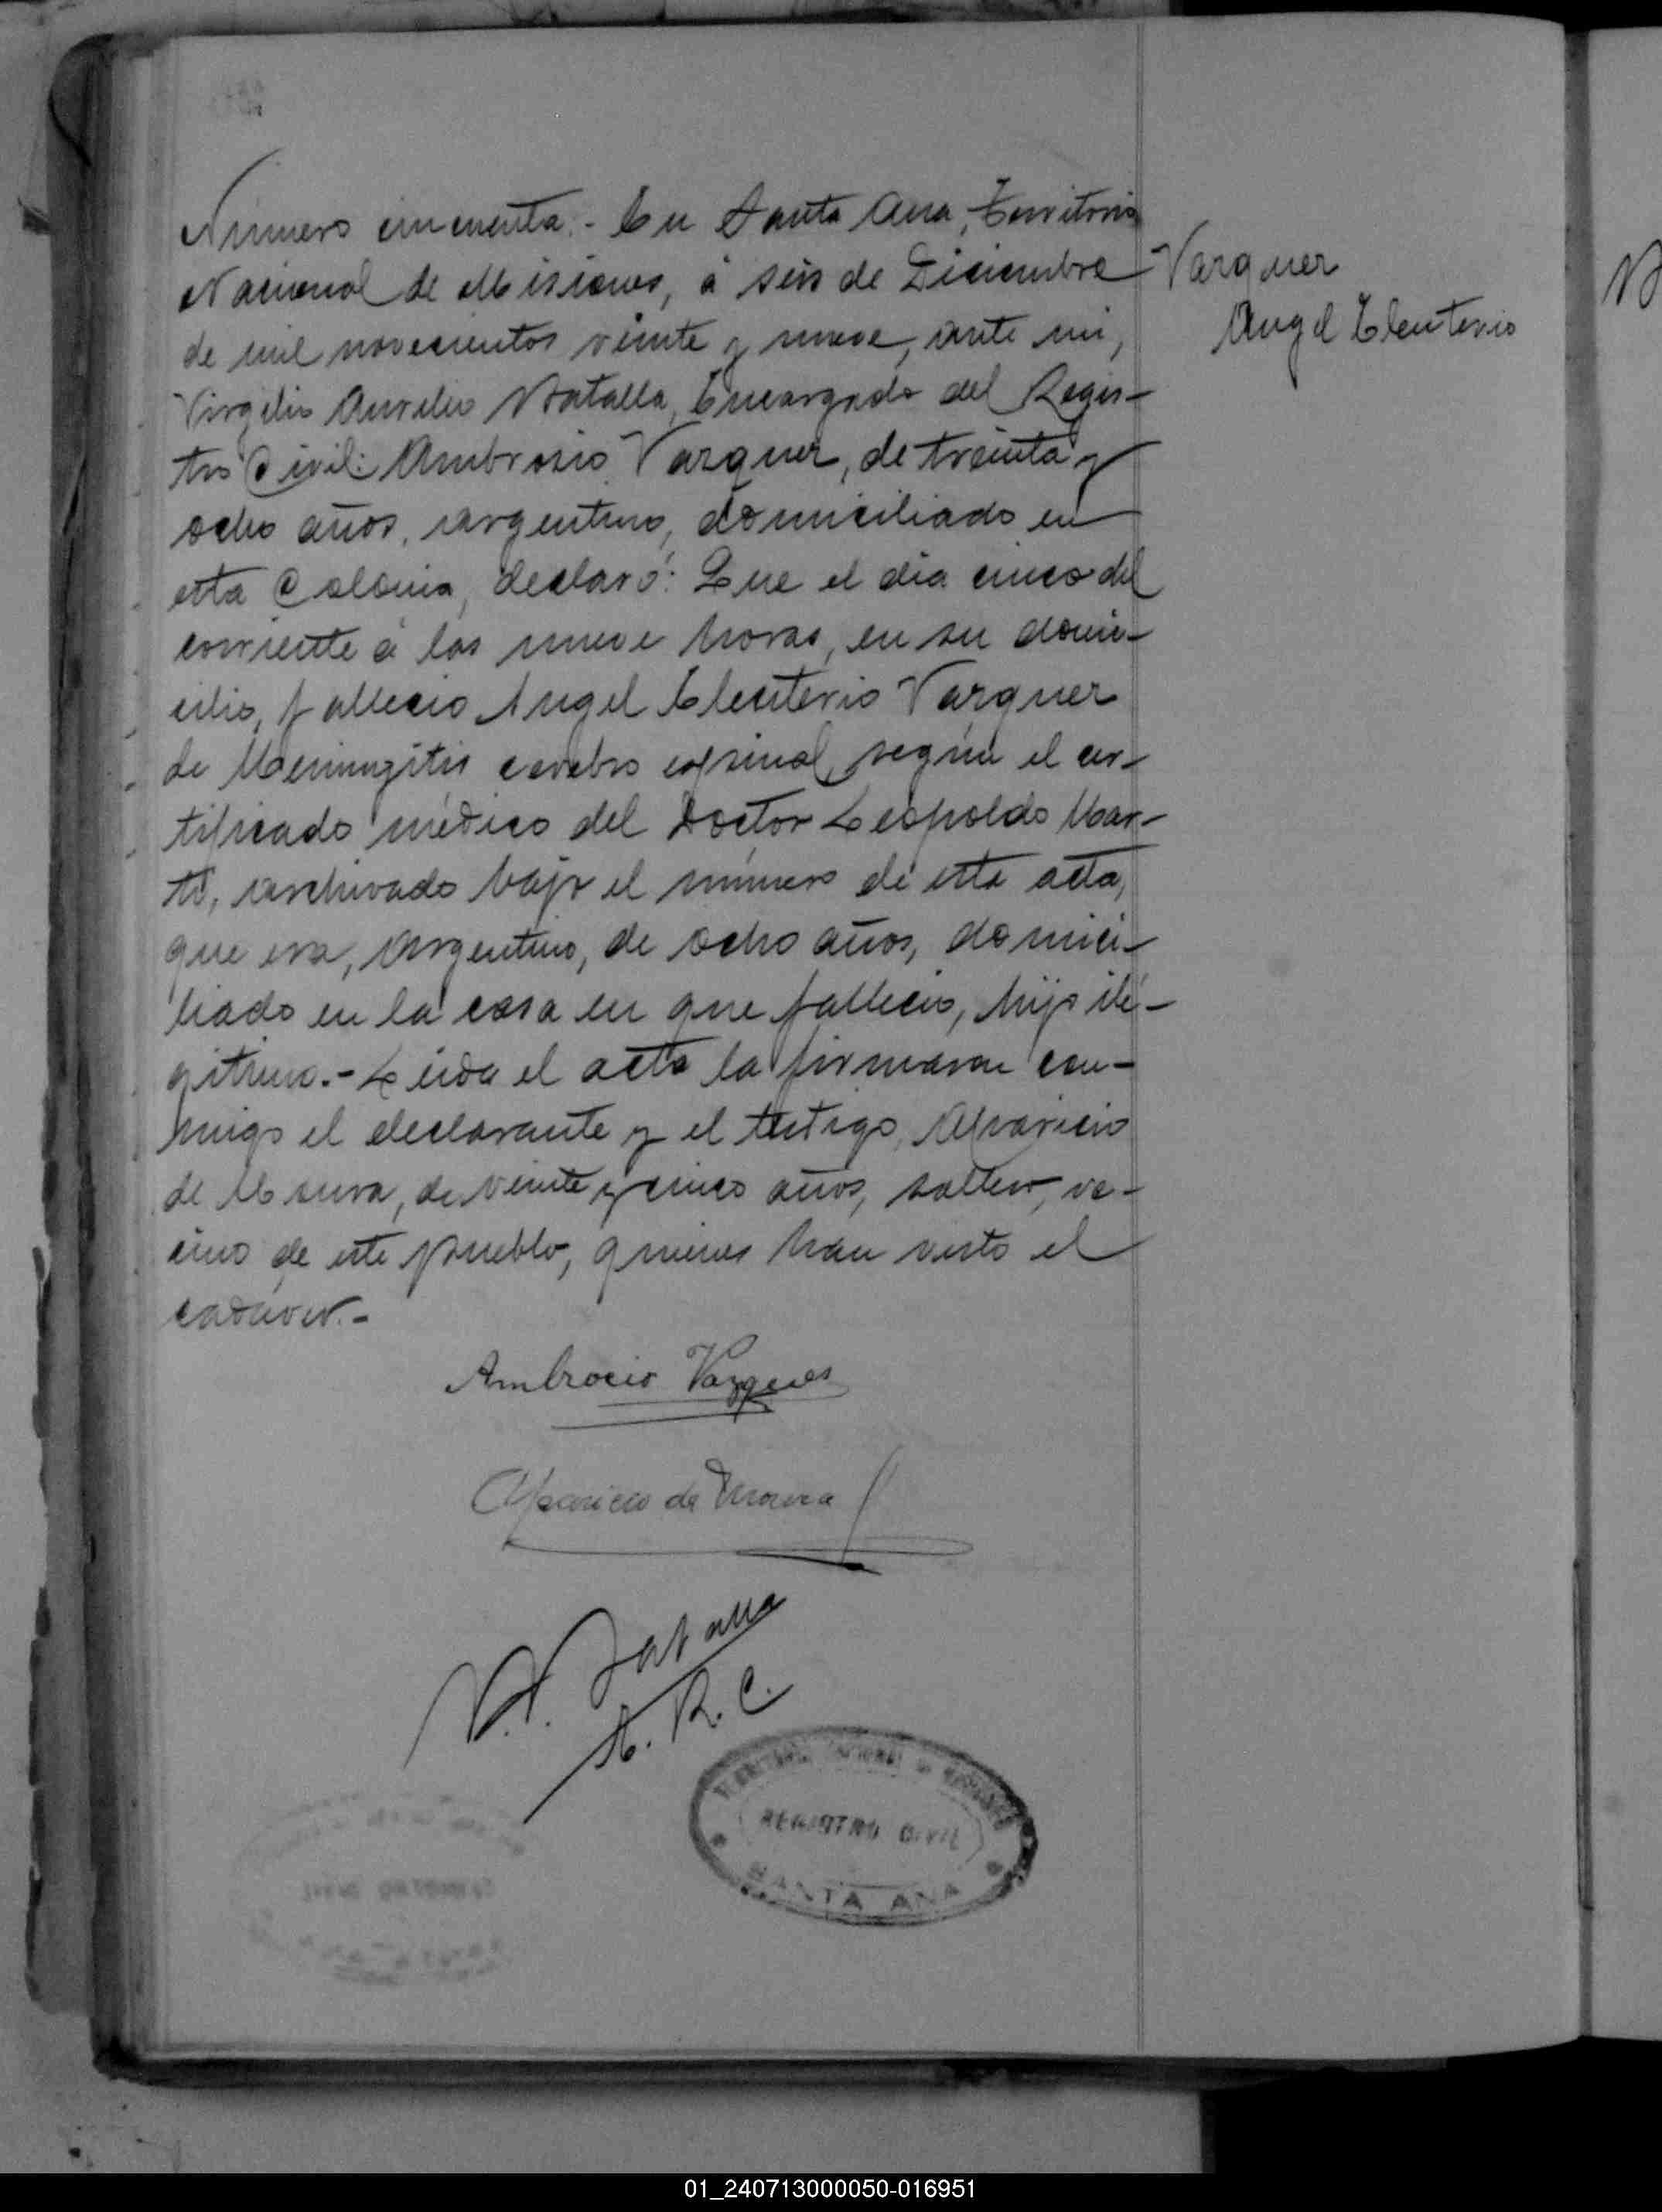 Número cincuenta.- En Santa Ana, Territorio
Nacional de Misiones, á seis de Diciembre
de mil novecientos veinte y nueve, ante mi,
Virgilio Aurelio Batalla, Encargado del Regis-
tro Civil: Ambrosio Vazquez, de treinta y
ocho años, argentino, domiciliado en
esta Colonia, declaró: Que el día cinco del
corriente á las nueve horas, en su domi-
cilio, falleció Angel Eleuterio Vazquez
de Meningitis cerebro espinal, según el cer-
tificado médico del Doctor Leopoldo Mar-
ti, archivado bajo el número de esta acta,
que era, Argentino, de ocho años, domici-
liado en la casa en que falleció, hijo ile-
gitimo.- Leida el acta la firmaron con-
migo el declarante y el testigo, Aparicio
de Moura, de veinte y cinco años, soltero, ve-
cino de este pueblo, quienes han visto el
cadáver.-
Vazquez
Angel Eleuterio
Ambrocio Vazques
Aparicio de Moura
V. A. Batalla
E. R. C.
TERRITORIO NACIONAL DE MISIONES
REGISTRO CIVIL
SANTA ANA
01_240713000050-016951